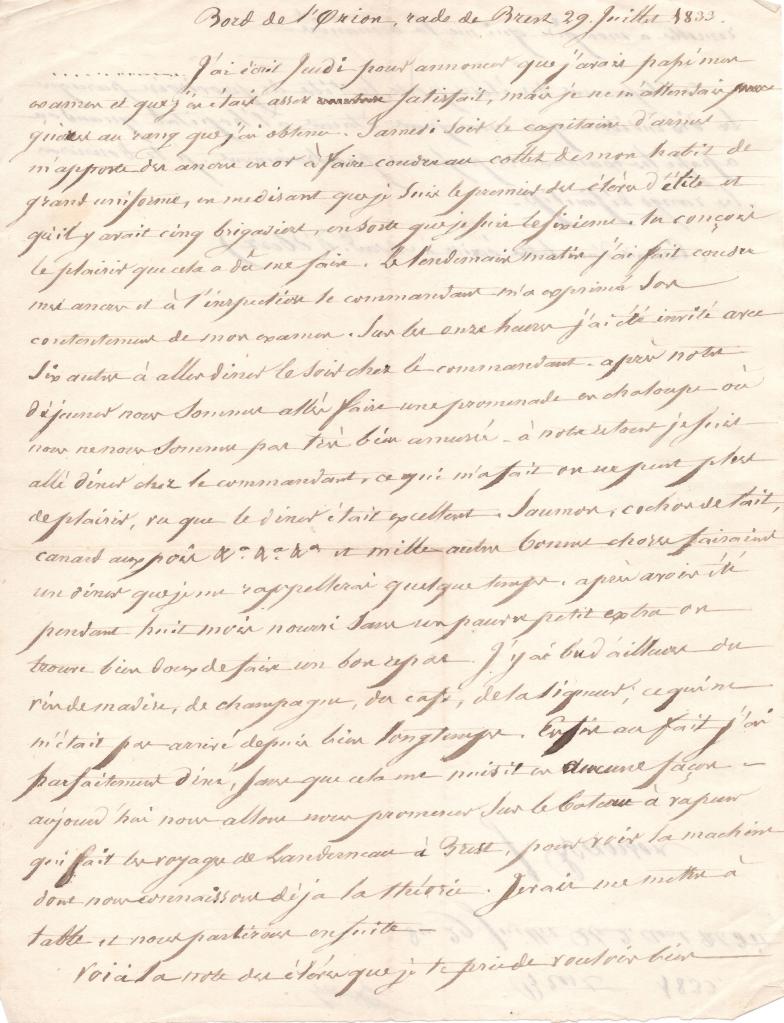 Bord de l'Orion, rade de Brest 29 Juillet 1833.
............ J'ai écrit Jeudi pour annoncer que j'avais passé mon
examen et que j'en étais assez satisfait, mais je ne m'attendais
guère au rang que j'ai obtenu. Samedi soir le capitaine d'armes
m'apporte des ancres en or à faire coudre au collet de mon habit de
grand uniforme, en me disant que je suis le premier des élèves d'élite et
qu'il y avait cinq brigadiers, en sorte que je suis le sixième. tu conçois
le plaisir que cela a dû me faire. Le lendemain matin j'ai fait coudre
mes ancres et à l'inspection le commandant m'a exprimé son
contentement de mon examen. Sur les onze heures j'ai été invité avec
six autres à aller diner le soir chez le commandant. après notre
déjeuner nous sommes allés faire une promenade en chaloupe où
nous ne nous sommes pas très bien amusés - à notre retour je suis
allé diner chez le commandant, ce qui m'a fait on ne peut plus
de plaisir, vu que le diner était excellent. Saumon, cochon de lait,
canard aux pois &a. &a. &a et mille autres bonnes choses faisaient
un diner que je me rappellerai quelque temps. après avoir été
pendant huit mois nourri sans un pauvre petit extra on
trouve bien doux de faire un bon repas. J'y ai bu d'ailleurs du
vin de madère, de champagne, du café, de la liqueur, ce qui ne
m'était pas arrivé depuis bien longtemps. Enfin au fait j'ai
parfaitement diné, sans que cela me nuisit en aucune façon -
aujourd'hui nous allons nous promener sur le bateau à vapeur
qui fait les voyages de Landerneau à Brest, pour voir la machine
dont nous connaissons déja la théorie. Je vais me mettre à
table et nous partirons ensuite -
Voici la note des élèves que je te prie de vouloir bien